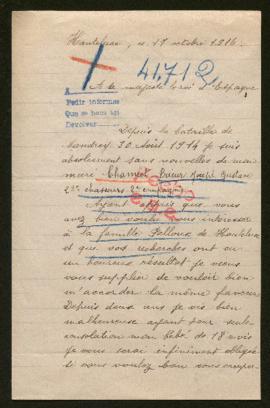 Hauteluce, le 17 octobre 1916.
41.712
A sa majesté le roi d'Espagne
A
Pedir informes
Que se hace así
Devolver
Depuis la bataille de
Mandray 30 Août 1914 je suis
absolument sans nouvelles de mon
mari Joseph Gustave
2e chasseurs 2e compagnie
Ayant appris que vous
avez bien voulu vous intéresser
à la famille de Hauteluce
et que vos recherches ont eu
un heureux résultat je viens
vous supplier de vouloir bien
m'accorder la même faveur.
Depuis deux ans je vis bien
malheureuse ayant pour seule
consolation mon bébé de 18 mois
je vous serai infiniment obligée
si vous voulez bien vous occuper